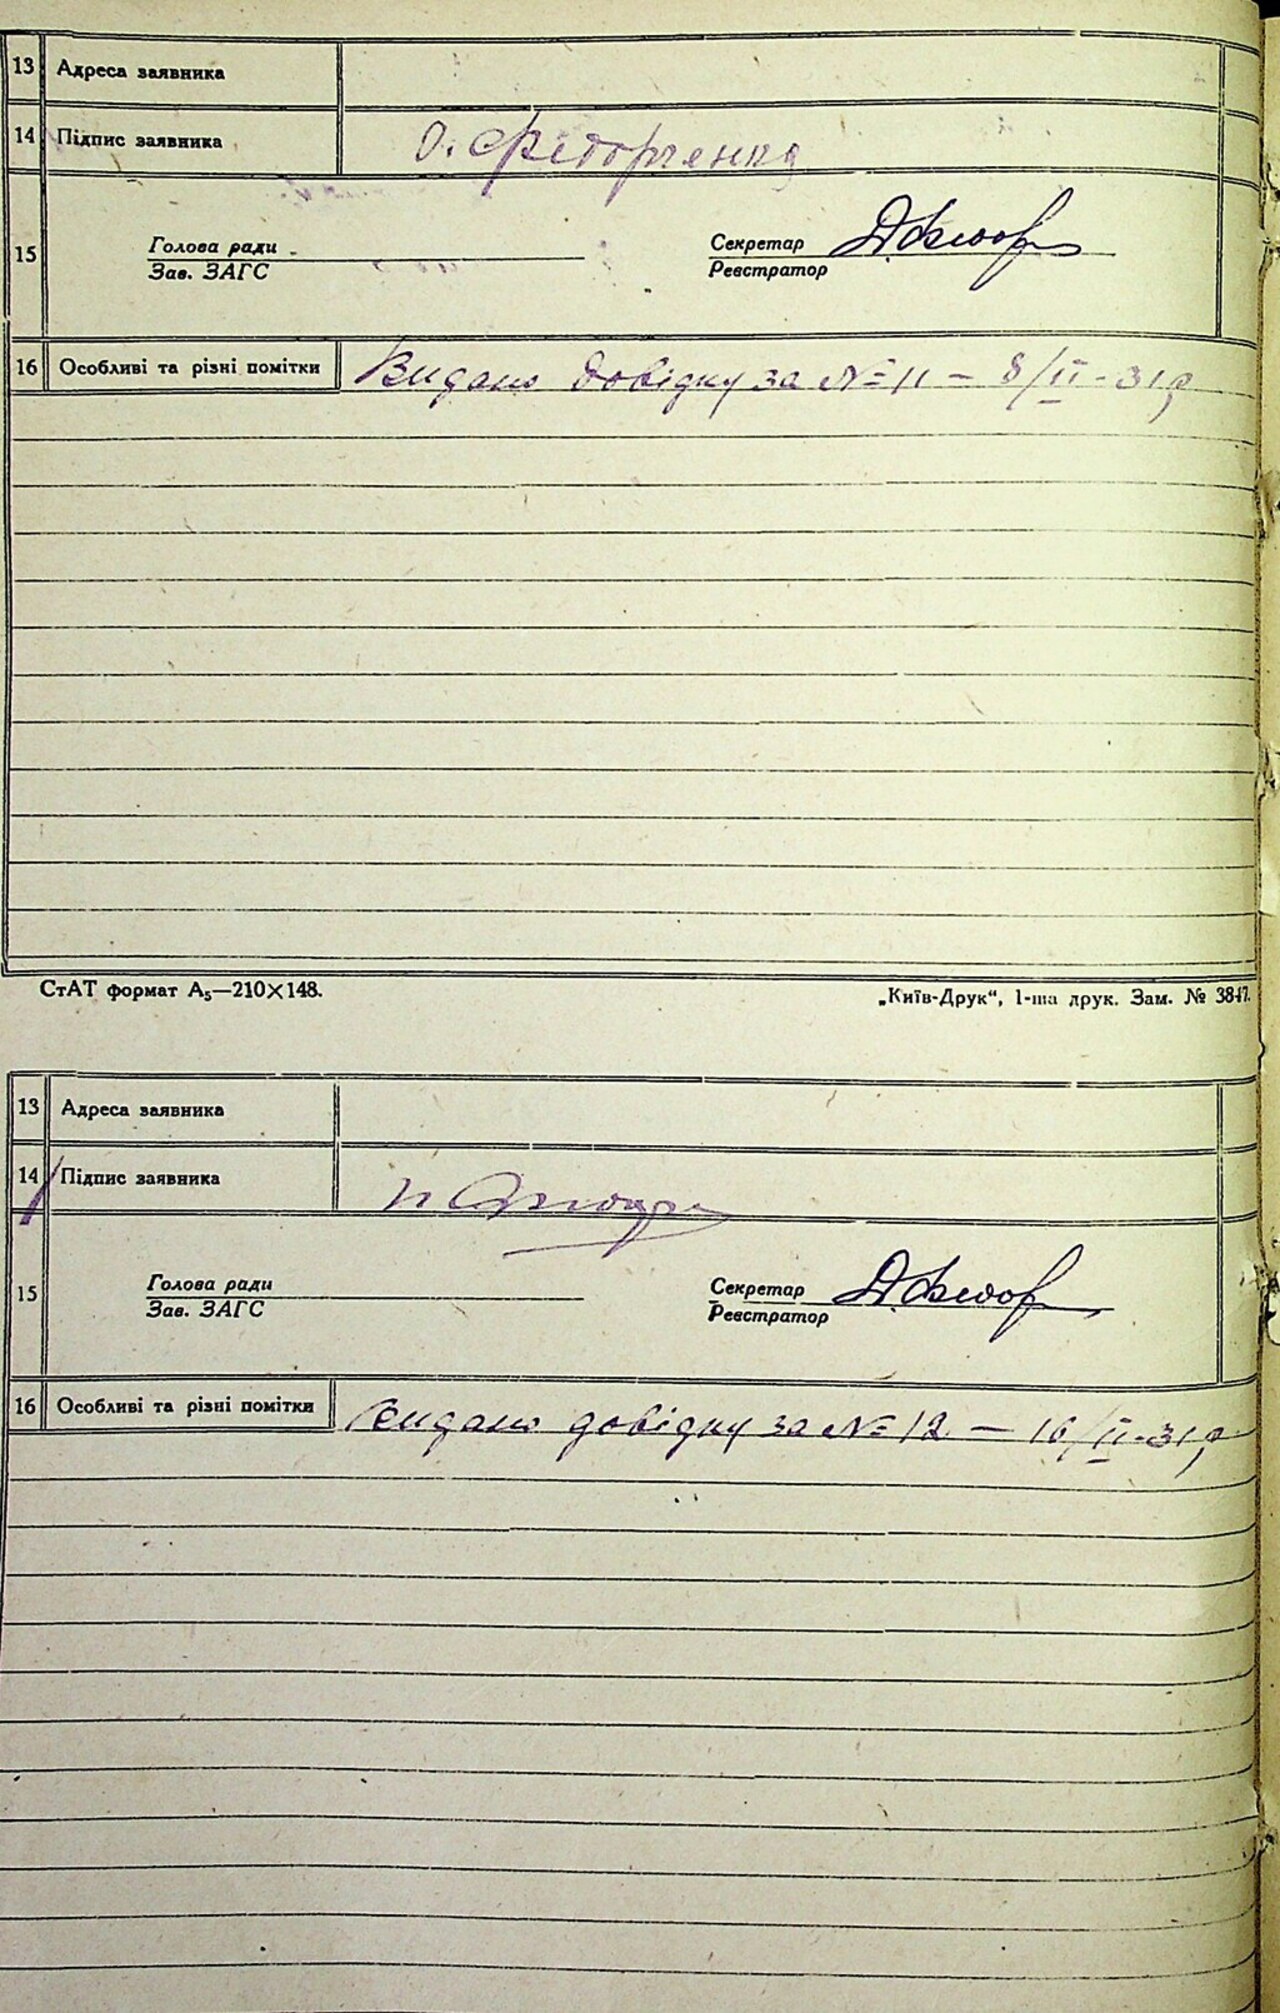 13 Адреса заявника
14 Підпис заявника О. Федорченко
Голова ради Секретар
15
Зав. ЗАГС Реєстратор
16 Особливі та різні помітки Видано довідку за № 11 – 8/II-31 р
СтАТ формат А₅—210×148. „Київ-Друк“, 1-ша друк. Зам. № 3847.
13 Адреса заявника
14 Підпис заявника
Голова ради Секретар
15
Зав. ЗАГС Реєстратор
16 Особливі та різні помітки Видано довідку за № 12 – 16/II-31 р